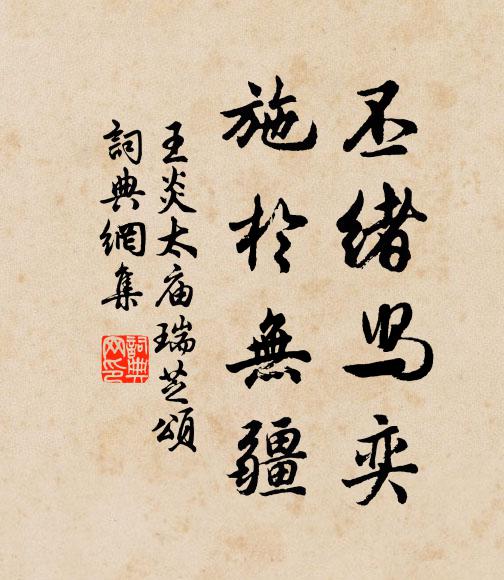 丕緒舄奕
施於無疆
王炎太庙瑞芝頌
詞典網集
詞典网印